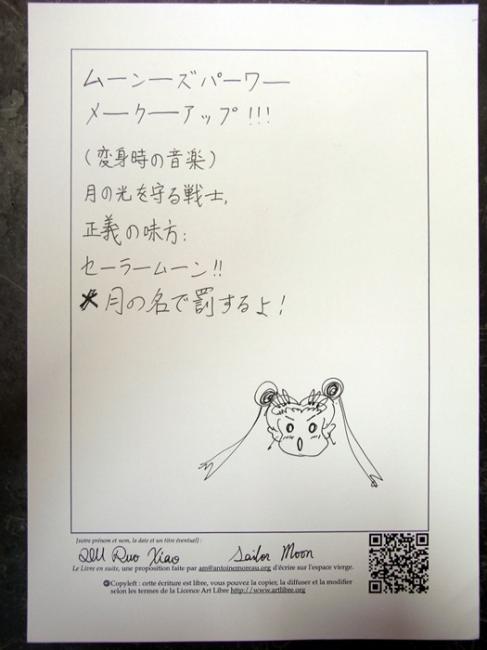 ムーンーズパーワー
メークーアップ!!!
(変身時の音楽)
月の光を守る戦士,
正義の味方:
セーラームーン!!
月の名で罰するよ!
[votre prénom et nom, la date et un titre éventuel] :
QIU Ruo Xiao Sailor Moon
Le Livre en suite, une proposition faite par am@antoinemoreau.org d'écrire sur l'espace vierge.
Copyleft : cette écriture est libre, vous pouvez la copier, la diffuser et la modifier
selon les termes de la Licence Art Libre http://www.artlibre.org